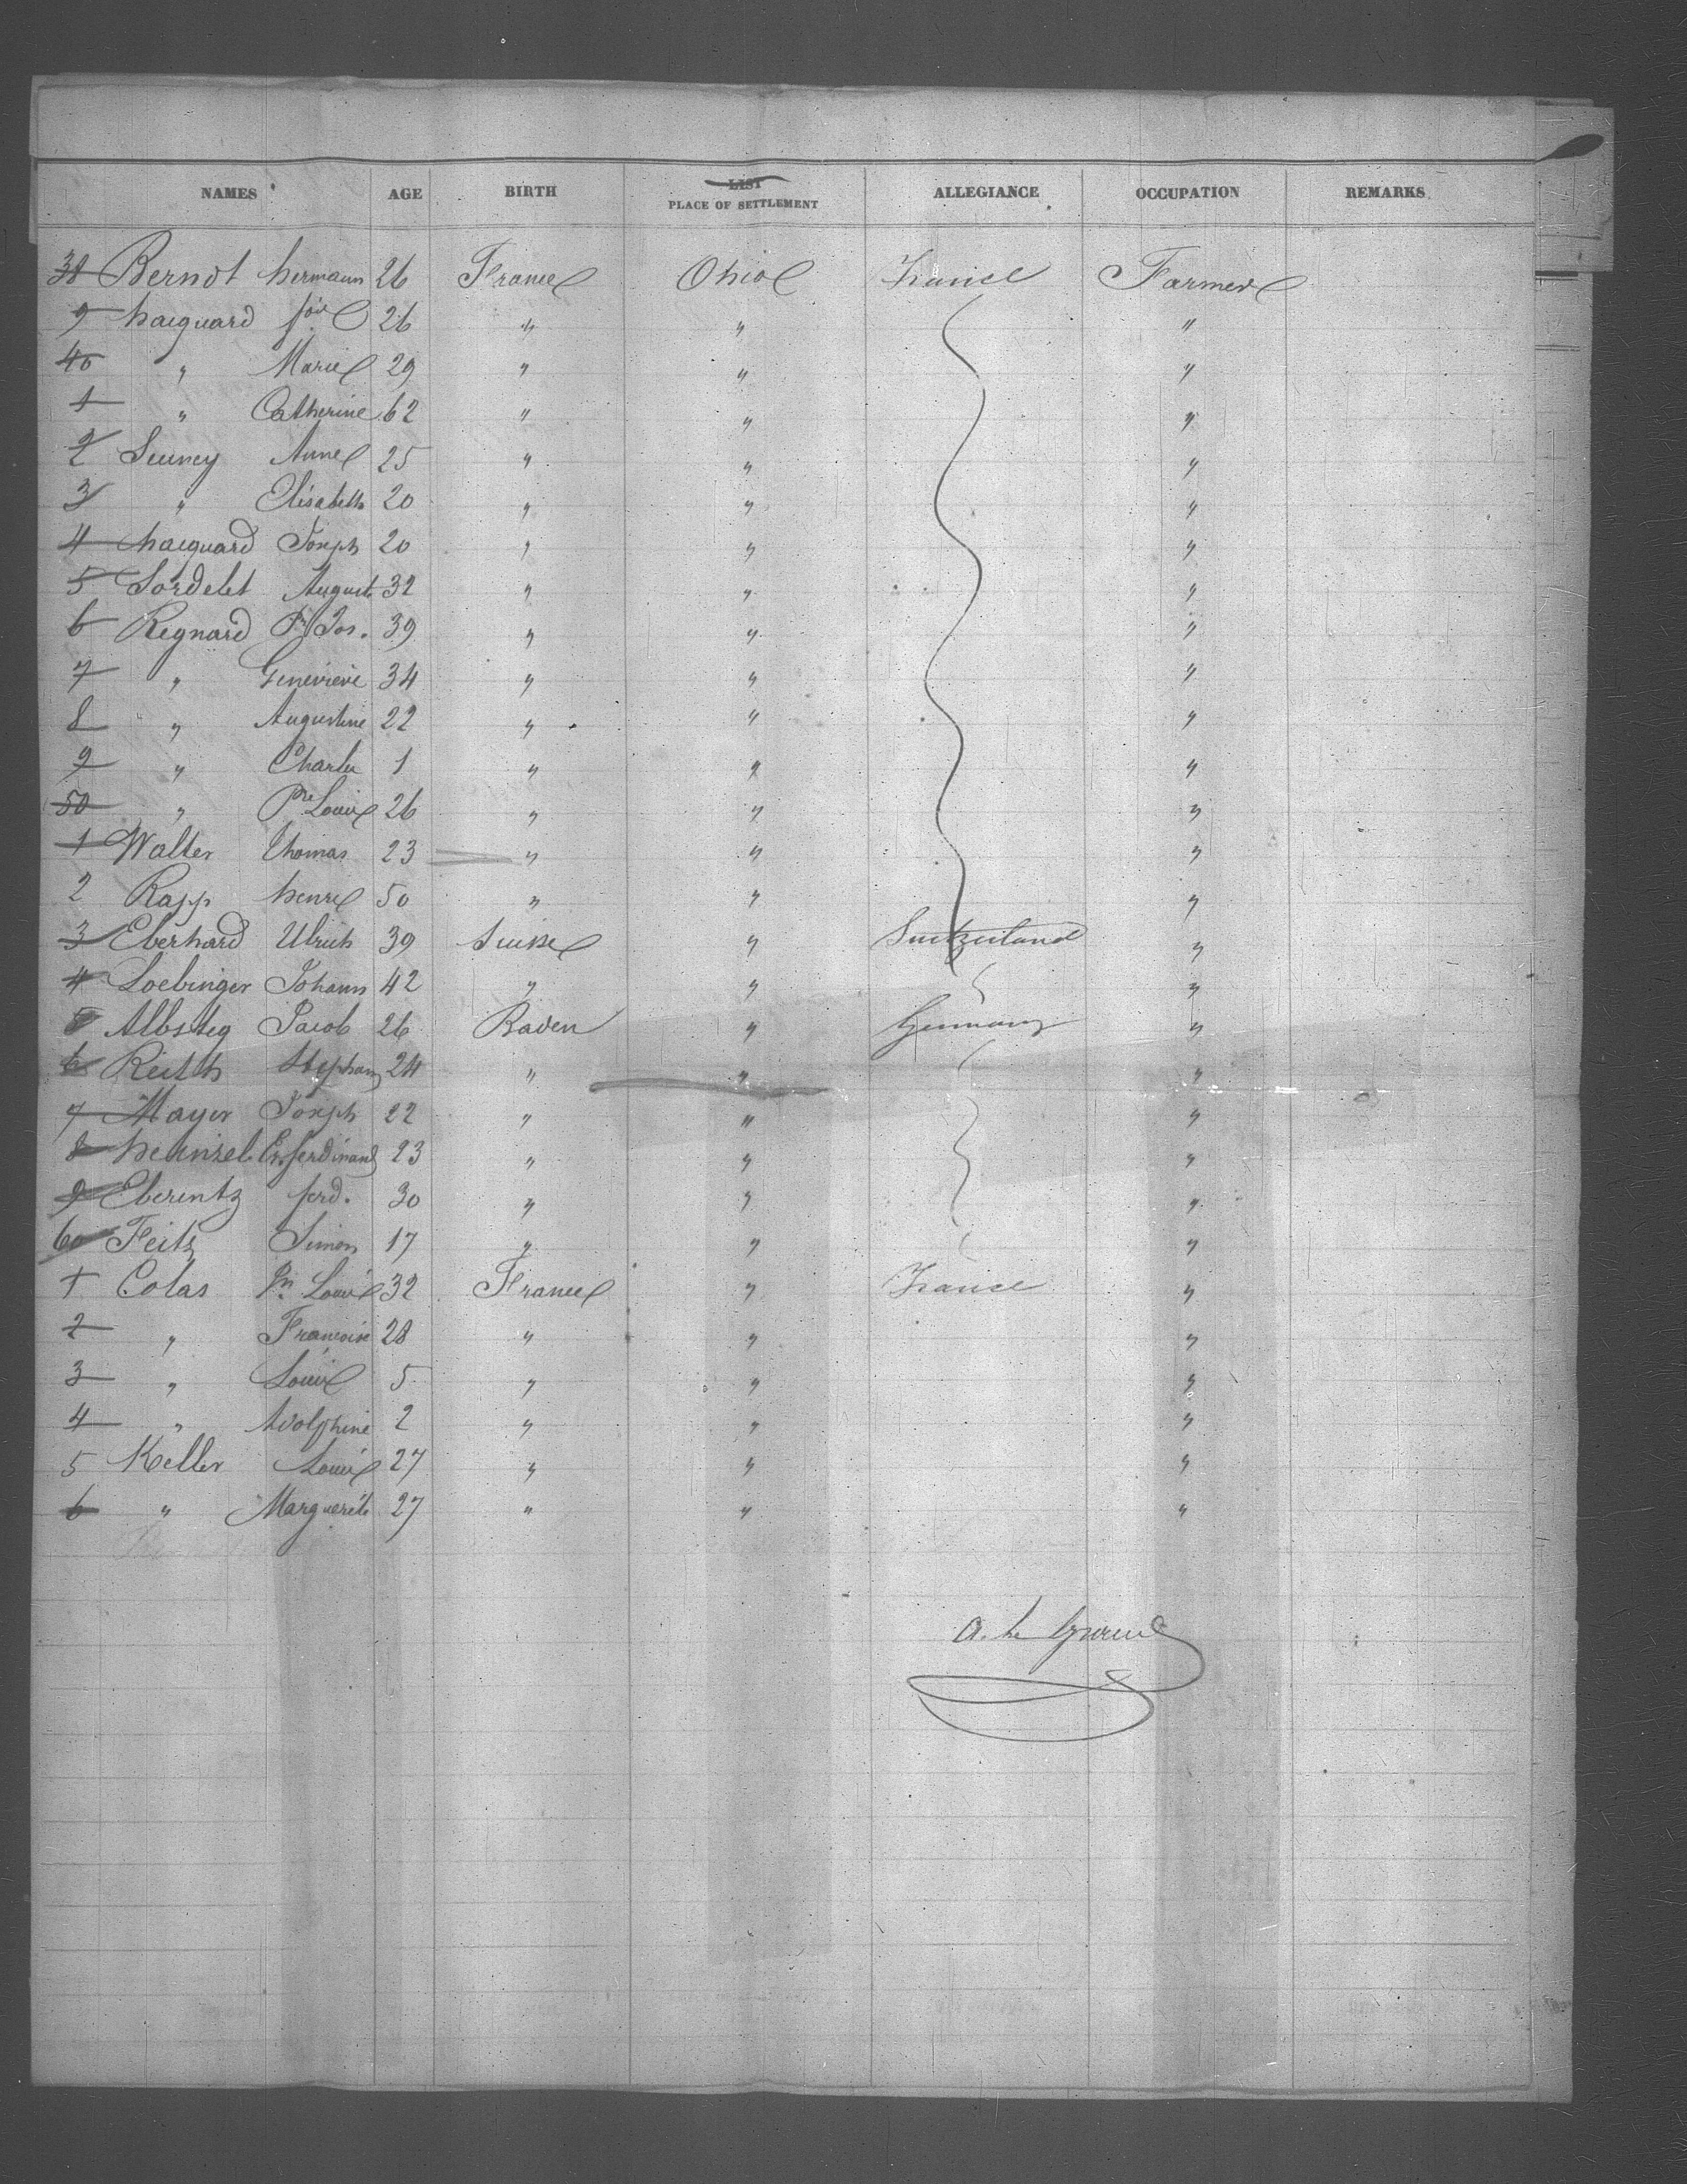 NAMES AGE BIRTH LIST PLACE OF SETTLEMENT ALLEGIANCE OCCUPATION REMARKS
38 Bernot hermann 26 France Ohio France Farmer
9 hacquard 26 " " "
40 " Marie 29 " " "
1 " Catherine 62 " " "
2 Anne 25 " " "
3 " Elisabeth 20 " " "
4 hacquard Joseph 20 " " "
5 Sordelet August 32 " " "
6 Regnard Jos. 39 " " "
7 " Genevieve 34 " " "
8 " Augustine 22 " " "
9 " Charles 1 " " "
50 " Pre Louis 26 " " "
1 Walter Thomas 23 " " "
2 Rapp henri 50 " " "
3 Eberhard Ulrich 39 Suisse " Switzerland "
4 Loebinger Johann 42 " " "
5 Albsteg Jacob 26 Baden " Germany "
6 Reith Stephan 24 " " "
7 Mayer Joseph 22 " " "
8 ferdinand 23 " " "
9 Eberentz ferd. 30 " " "
60 Feitz Simon 17 " " "
1 Colas Louis 32 France " France "
2 " Francoise 28 " " "
3 " Louis 5 " " "
4 " Adolphine 2 " " "
5 Keller Louis 27 " " "
6 " Marguerite 27 " " "